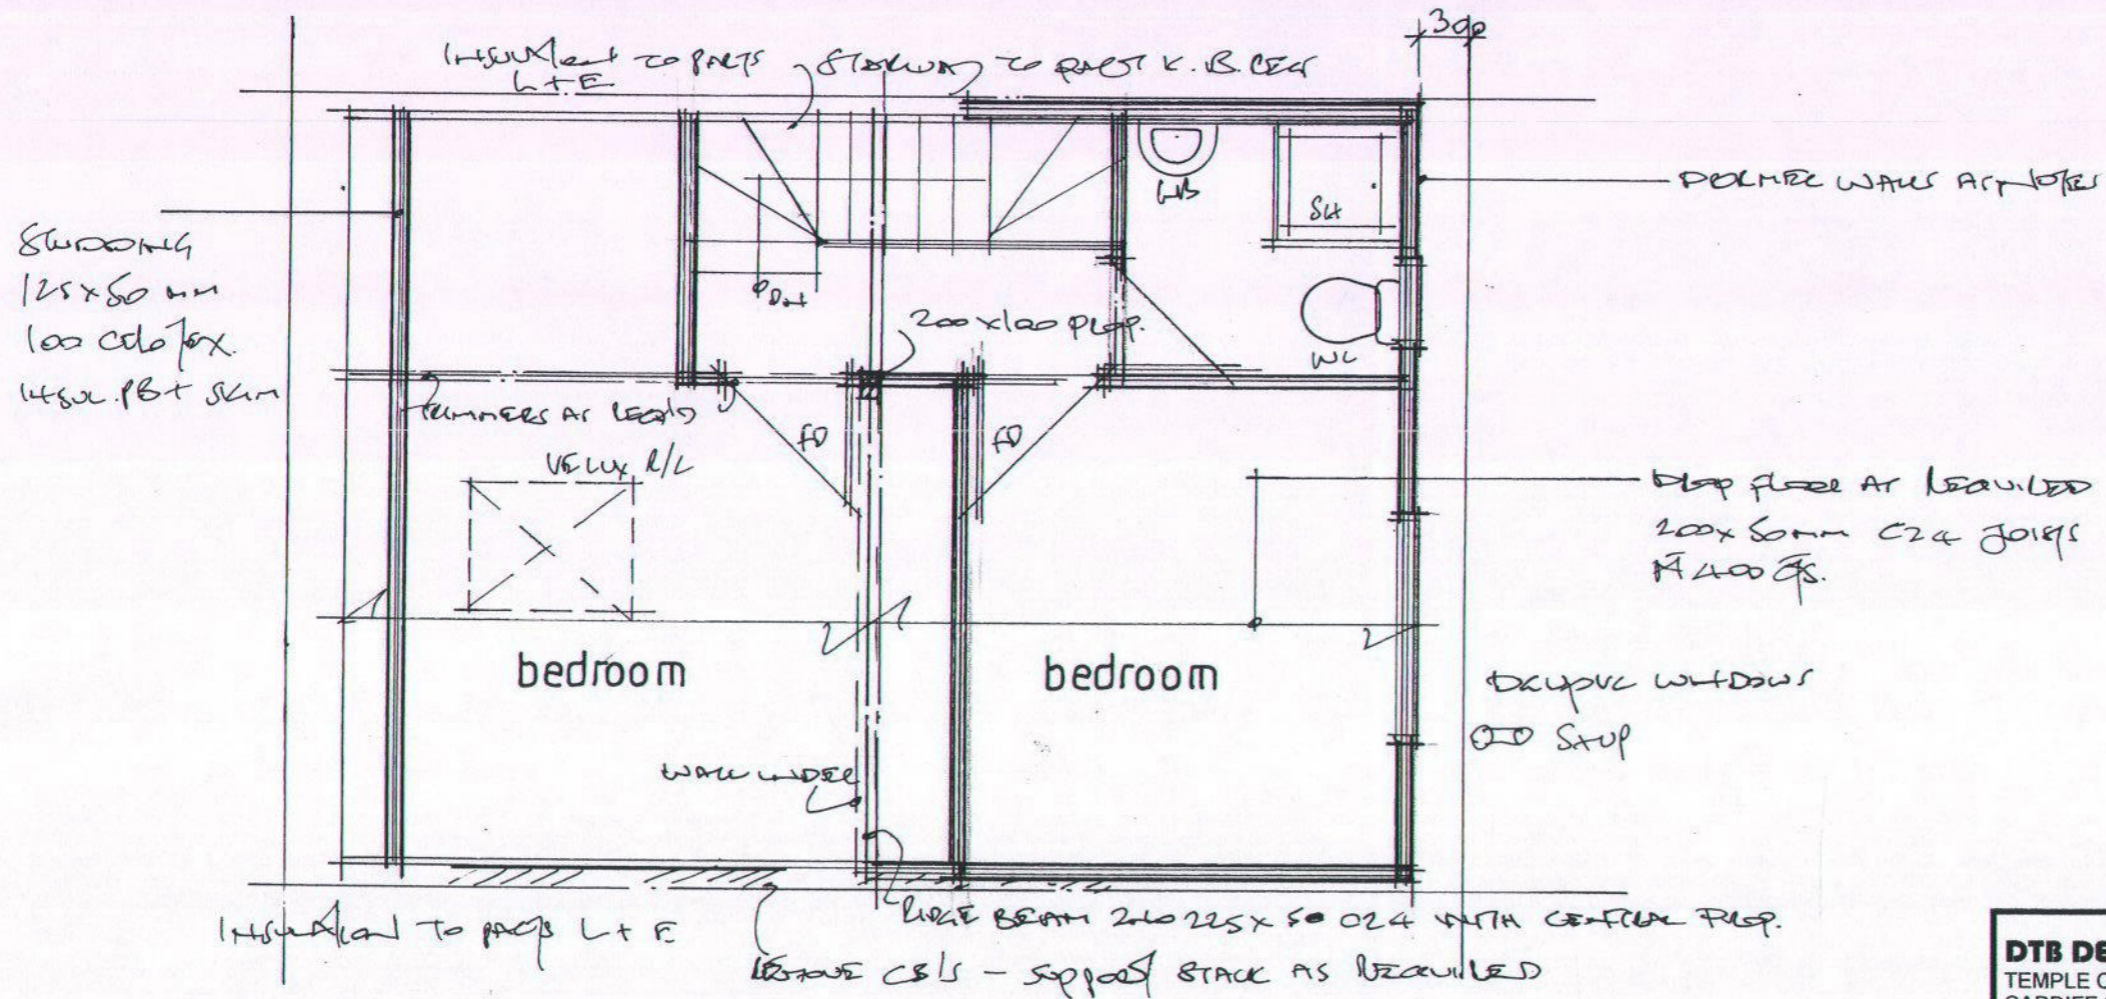 300
INSULATION TO PARTS
L + E
STAIRWAY TO PART K. B. REGS
DORMER WALLS AS NOTES
WB
SH
STUDDING
125 x 50 mm
100 Celotex.
INSUL. PB + SKIM
200 x 100 PROP.
WC
TRIMMERS AS REQ'D
FD
FD
VELUX R/L
DROP FLOOR AS REQUIRED
200 x 50 mm C24 JOISTS
400
bedroom
bedroom
WINDOWS
WALL UNDER
INSULATION TO PARTS L + E
RIDGE BEAM 2no 225 x 50 C24 WITH CENTRAL PROP.
REMOVE CB/S - SUPPORT STACK AS REQUIRED
DTB DE
TEMPLE C
CARDIFF